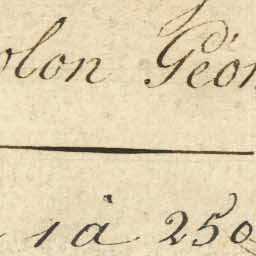 olon Géom
1 à 250